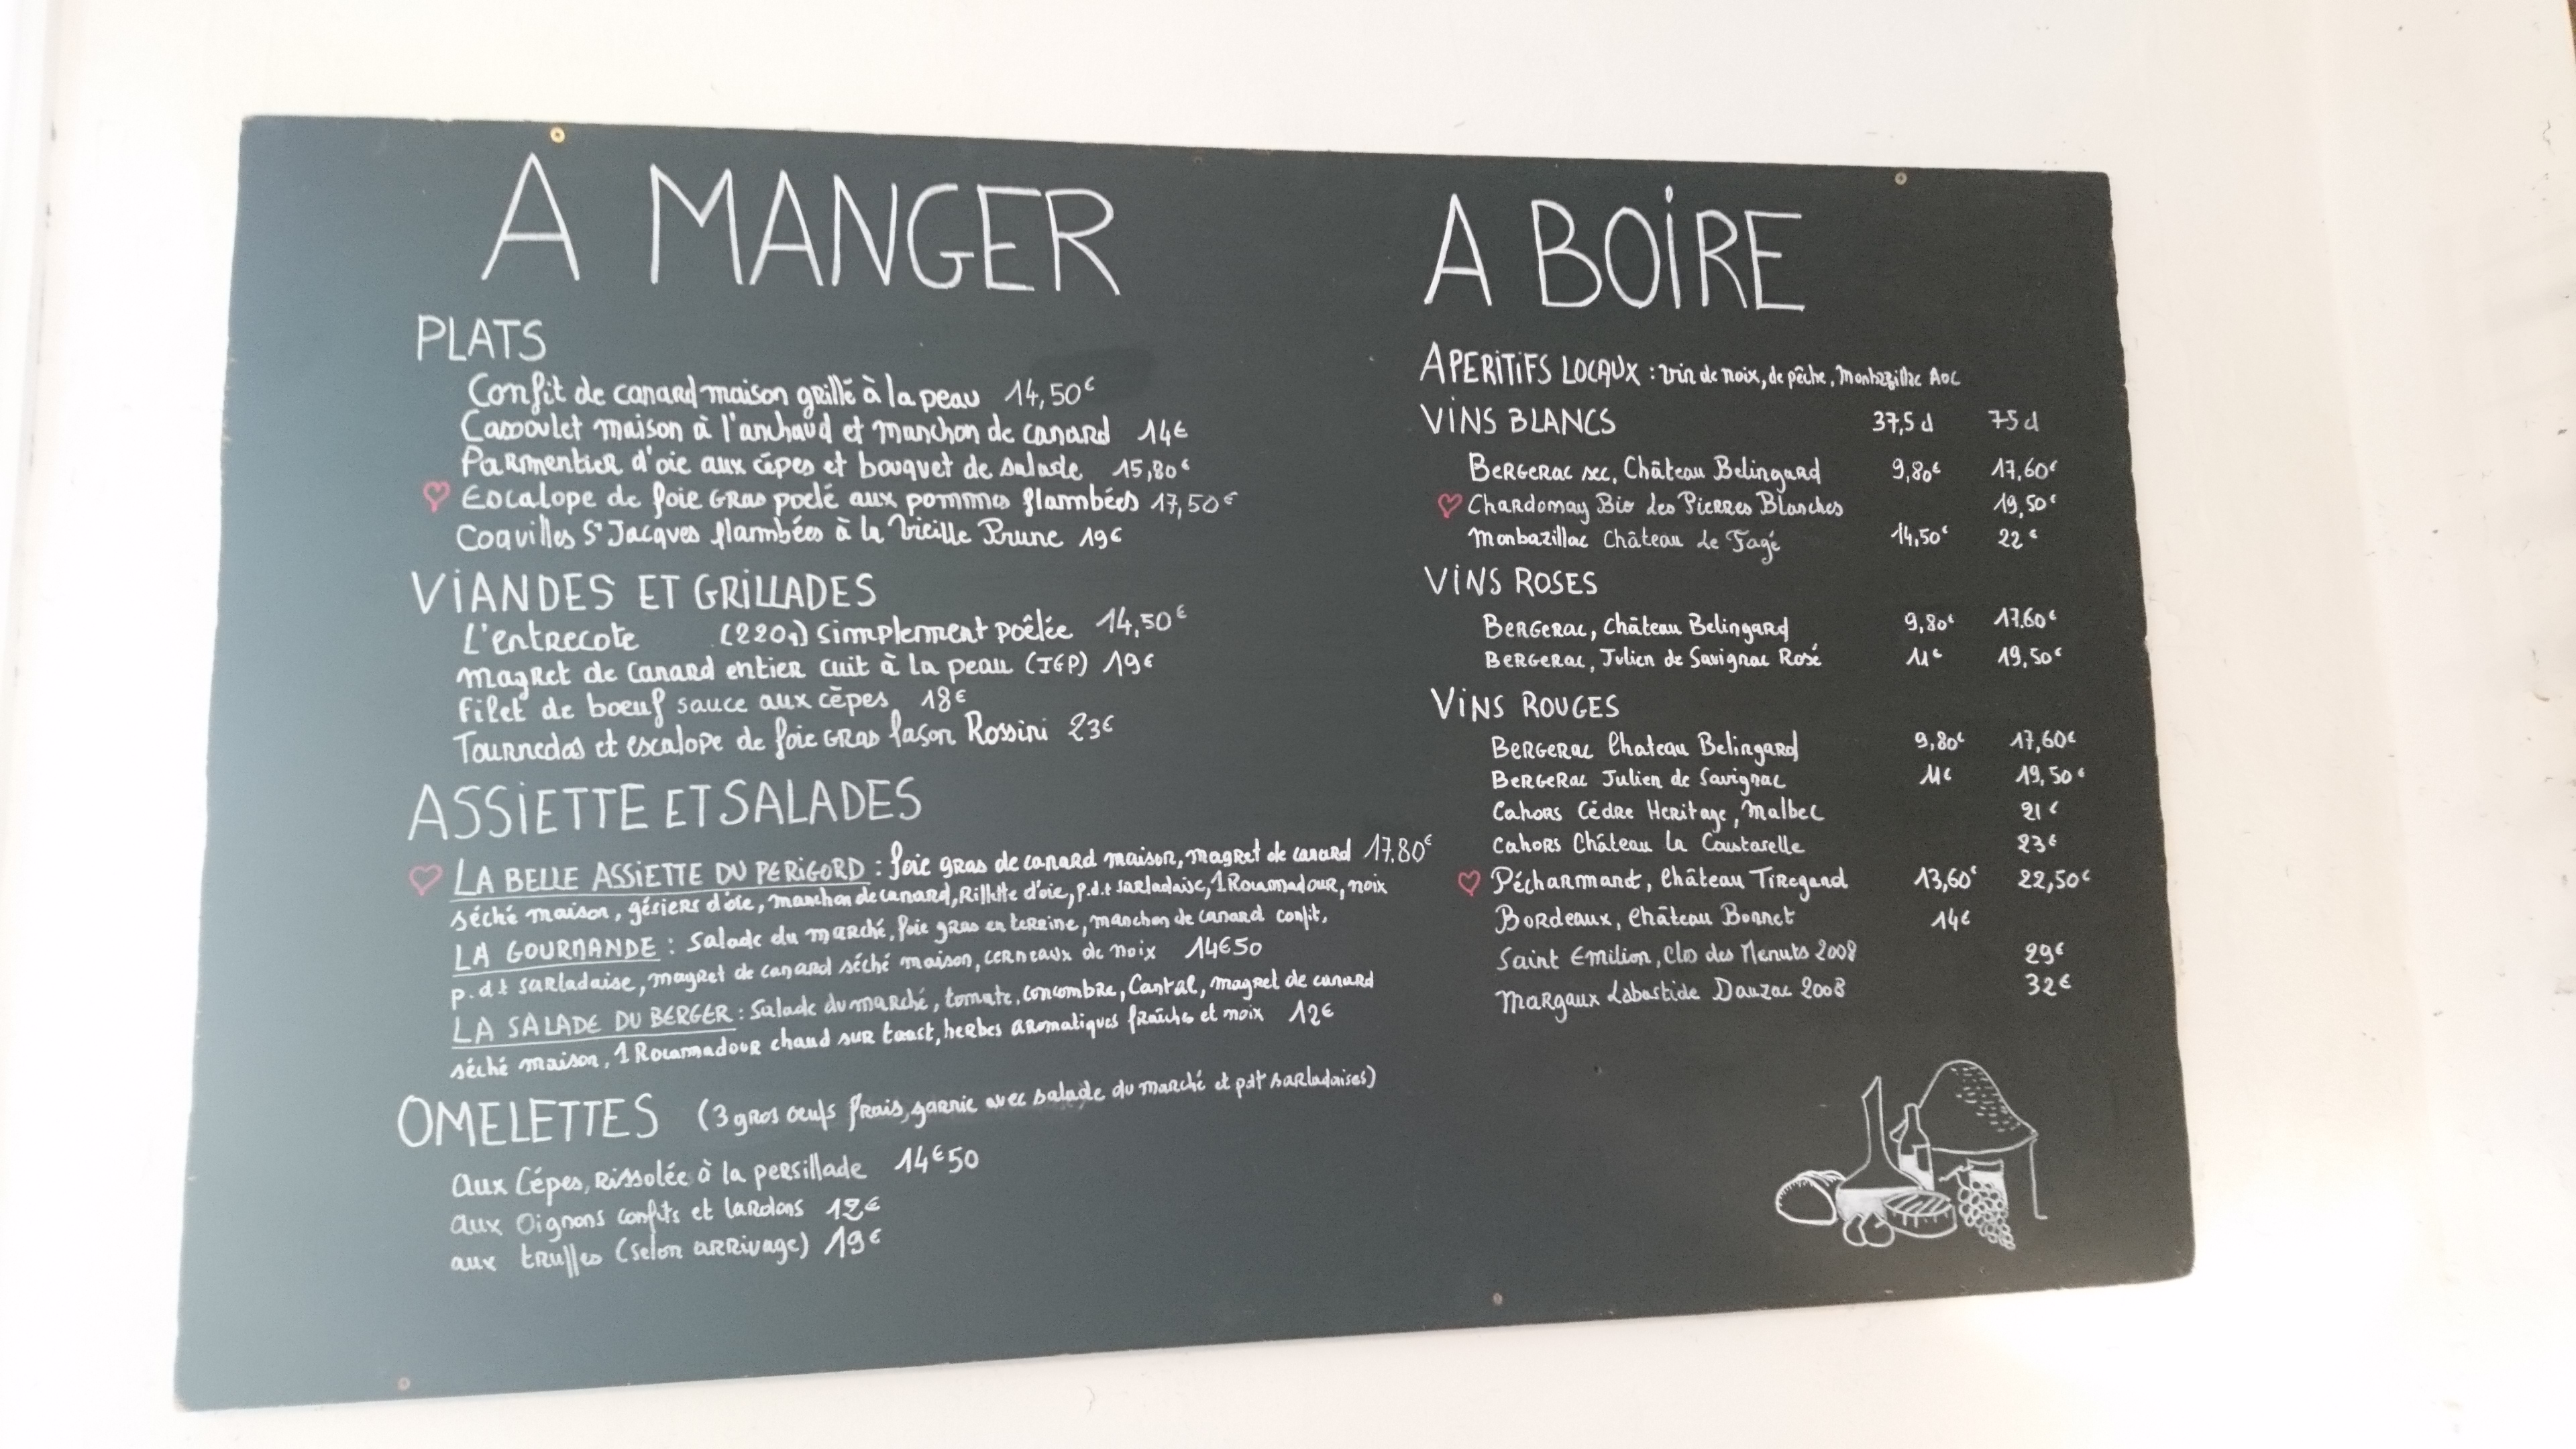 A MANGER
PLATS
Confit de canard maison grillé à la peau 14,50€
Cassoulet maison à l'anchaud et manchon de canard 14€
Parmentier d'oie aux cèpes et bouquet de salade 15,80€
Escalope de foie gras poelé aux pommes flambées 17,50€
Coquilles St Jacques flambées à la Vieille Prune 19€
VIANDES ET GRILLADES
L'entrecote (220g) simplement poêlée 14,50€
Magret de canard entier cuit à la peau (IGP) 19€
Filet de boeuf sauce aux cèpes 18€
Tournedos et escalope de foie gras façon Rossini 23€
ASSIETTE ET SALADES
LA BELLE ASSIETTE DU PERIGORD : foie gras de canard maison, magret de canard 17.80€
séché maison, gésiers d'oie, manchon de canard, Rillette d'oie, p.d.t sarladaise, 1 Rocamadour, noix
LA GOURMANDE : salade du marché, foie gras en terrine, manchon de canard confit,
p.d.t sarladaise, magret de canard séché maison, cerneaux de noix 14€50
LA SALADE DU BERGER : Salade du marché, tomate, concombre, Cantal, magret de canard
séché maison, 1 Rocamadour chaud sur toast, herbes aromatiques fraîches et noix 12€
OMELETTES (3 gros oeufs frais, garnie avec salade du marché et pdt sarladaises)
aux Cépes, rissolée à la persillade 14€50
aux Oignons confits et lardons 12€
aux truffes (selon arrivage) 19€
A BOIRE
APERITIFS LOCAUX : vin de noix, de pêche, Monbazillac AOC
VINS BLANCS 37,5 cl 75 cl
Bergerac sec, Château Belingard 9,80€ 17,60€
Chardonnay Bio Les Pierres Blanches 19,50€
Monbazillac Château Le Fagé 14,50€ 22€
VINS ROSES
Bergerac, Château Belingard 9,80€ 17.60€
Bergerac, Julien de Savignac Rosé 11€ 19,50€
VINS ROUGES
Bergerac Chateau Belingard 9,80€ 17,60€
Bergerac Julien de Savignac 11€ 19,50€
Cahors Cédre Heritage, Malbec 21€
Cahors Château La Coustarelle 23€
Pécharmant, Château Tiregand 13,60€ 22,50€
Bordeaux, Château Bonnet 14€
Saint Emilion, Clos des Menuts 2008 29€
Margaux Labastide Dauzac 2008 32€